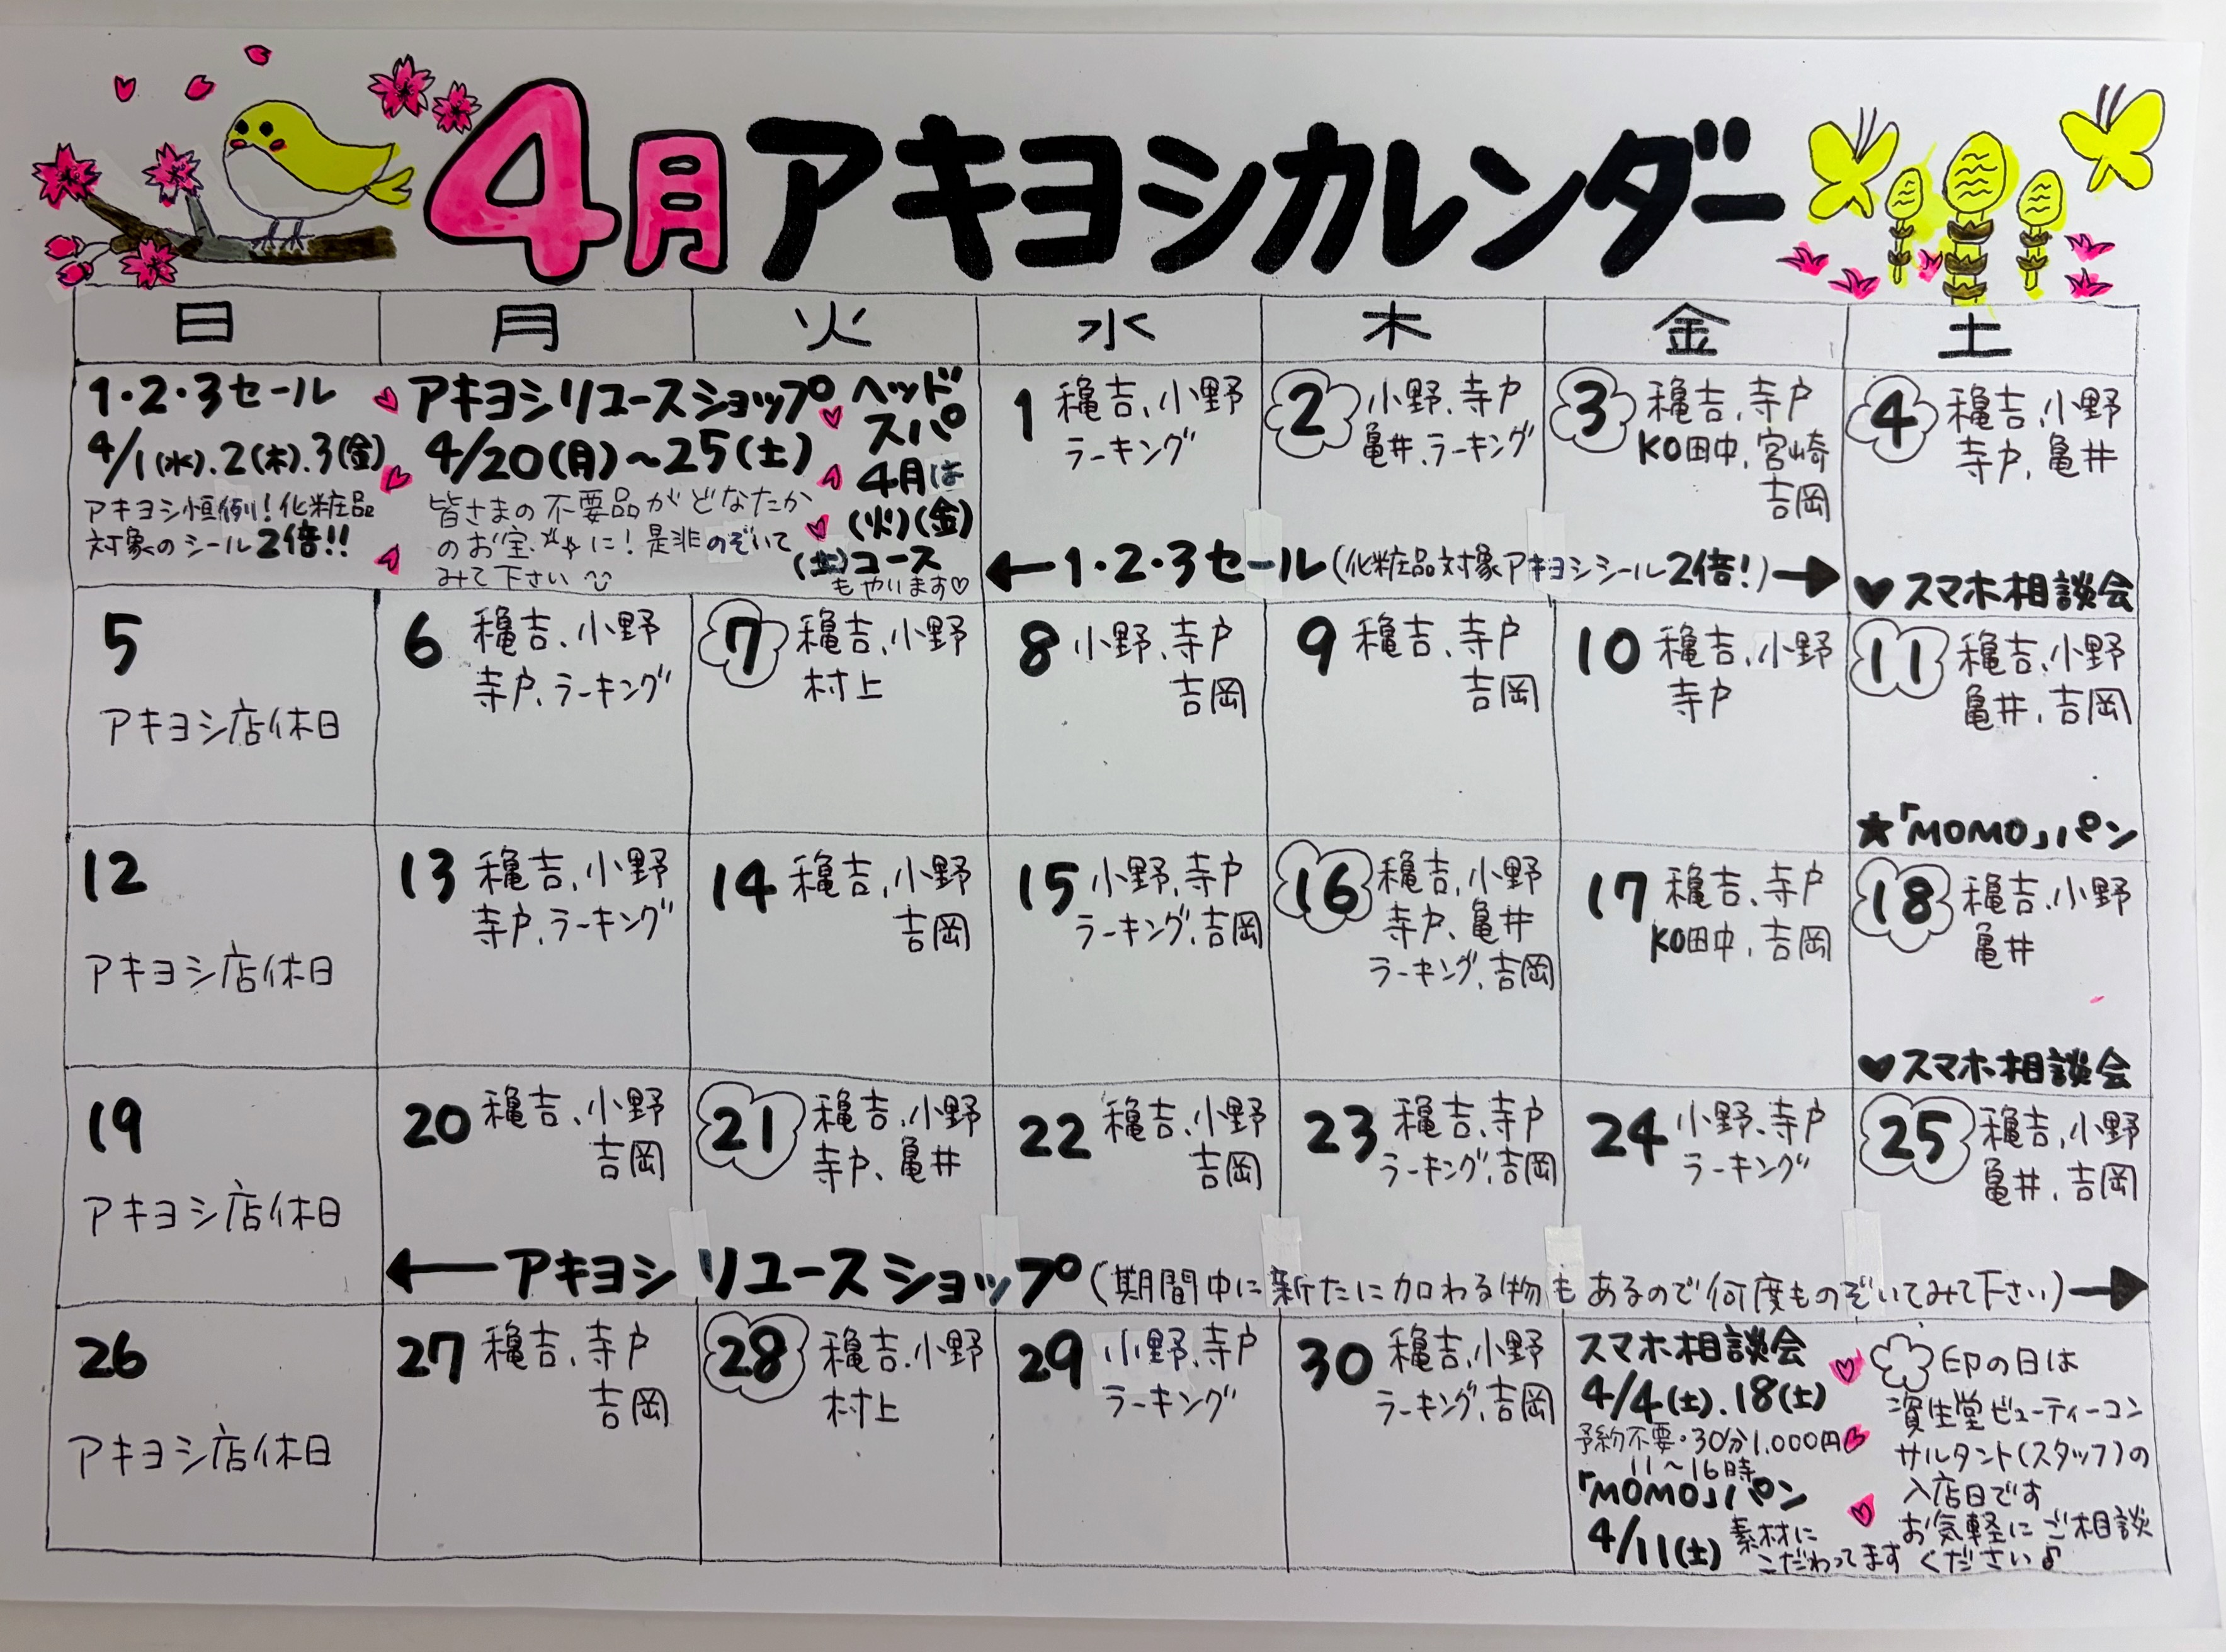 4月アキヨシカレンダー
日 月 火 水 木 金 土
1・2・3セール
4/1(水).2(木).3(金)
アキヨシ恒例!化粧品
対象のシール2倍!!
アキヨシリユースショップ
4/20(月)~25(土)
皆さまの不要品がどなたか
のお宝に!是非のぞいて
みて下さい
ヘッド
スパ
4月は
(火)(金)
(土)コース
もやります♡
1 穐吉、小野
ラーキング
2 小野、寺戸
亀井、ラーキング
3 穐吉、寺戸
KO田中、宮崎
吉岡
4 穐吉、小野
寺戸、亀井
←1・2・3セール(化粧品対象アキヨシシール2倍!)→
♥スマホ相談会
5
アキヨシ店休日
6 穐吉、小野
寺戸、ラーキング
7 穐吉、小野
村上
8 小野、寺戸
吉岡
9 穐吉、寺戸
吉岡
10 穐吉、小野
寺戸
11 穐吉、小野
亀井、吉岡
★「MOMO」パン
12
アキヨシ店休日
13 穐吉、小野
寺戸、ラーキング
14 穐吉、小野
吉岡
15 小野、寺戸
ラーキング、吉岡
16 穐吉、小野
寺戸、亀井
ラーキング、吉岡
17 穐吉、寺戸
KO田中、吉岡
18 穐吉、小野
亀井
♥スマホ相談会
19
アキヨシ店休日
20 穐吉、小野
吉岡
21 穐吉、小野
寺戸、亀井
22 穐吉、小野
吉岡
23 穐吉、寺戸
ラーキング、吉岡
24 小野、寺戸
ラーキング
25 穐吉、小野
亀井、吉岡
←アキヨシリユースショップ(期間中に新たに加わる物もあるので何度ものぞいてみて下さい)→
26
アキヨシ店休日
27 穐吉、寺戸
吉岡
28 穐吉、小野
村上
29 小野、寺戸
ラーキング
30 穐吉、小野
ラーキング、吉岡
スマホ相談会
4/4(土).18(土)
予約不要・30分1,000円
11~16時
「MOMO」パン
4/11(土)
素材に
こだわってます
印の日は
資生堂ビューティーコン
サルタント(スタッフ)の
入店日です
お気軽にご相談
ください♪